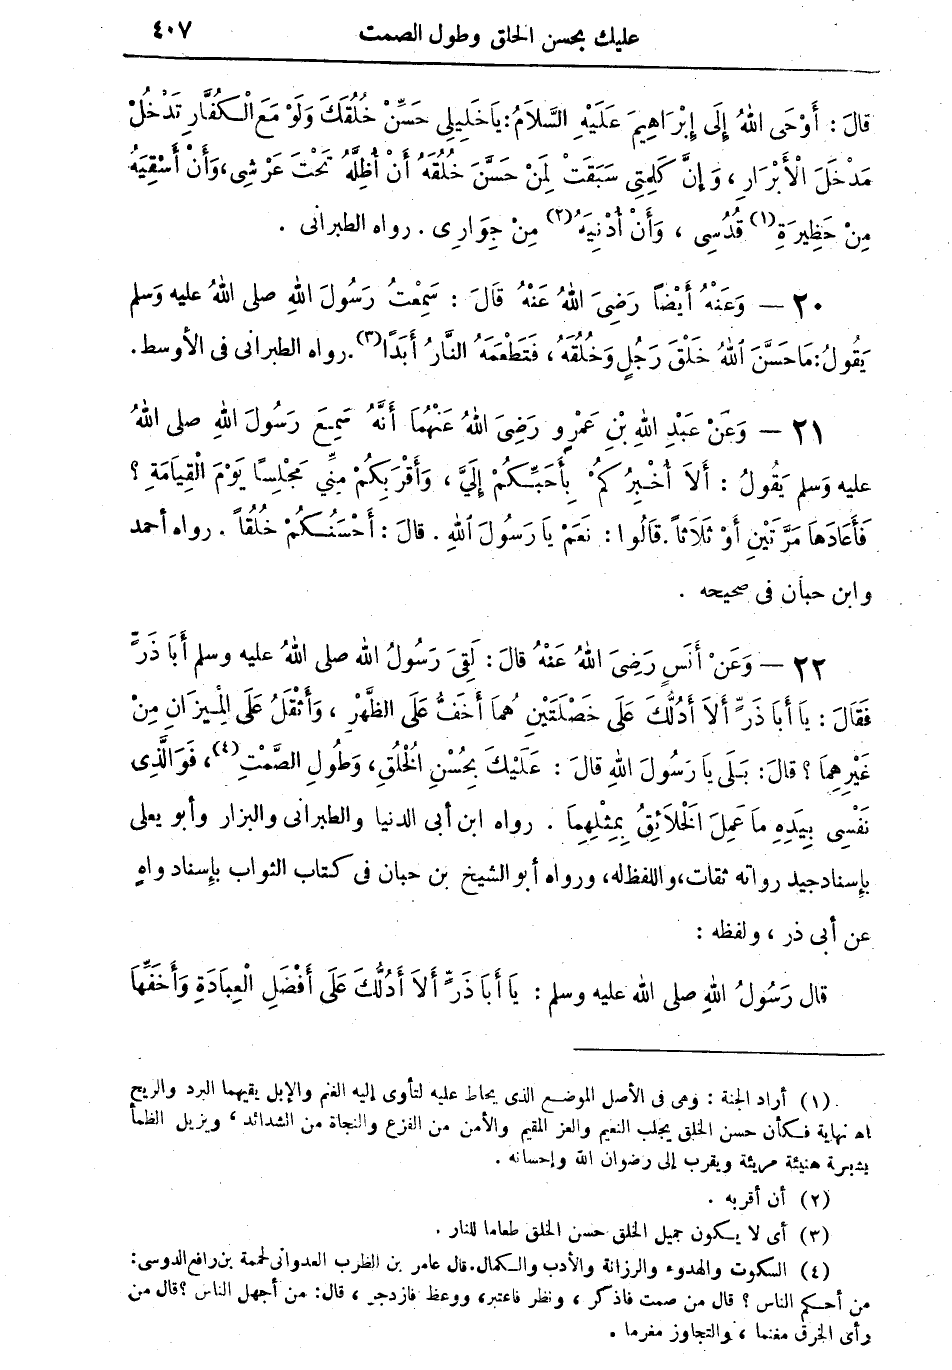 عليك بحسن الخلق وطول الصمت ٤٠٧
قَالَ : أَوْحَى اللهُ إِلَى إِبْرَاهِيمَ عَلَيْهِ السَّلَامُ: يَاخَلِيلِى حَسِّنْ خُلُقَكَ وَلَوْ مَعَ الْكُفَّارِ تَدْخُلْ
مَدْخَلَ الْأَبْرَارِ ، وَإِنَّ كَلِمَتِى سَبَقَتْ لِمَنْ حَسَّنَ خُلُقَهُ أَنْ أُظِلَّهُ تَحْتَ عَرْشِى، وَأَنْ أَسْقِيَهُ
مِنْ حَظِيرَةِ(١) قُدْسِى ، وَأَنْ أُدْنِيَهُ(٢) مِنْ جِوَارِى . رواه الطبرانى .
٢٠ — وَعَنْهُ أَيْضاً رَضِىَ اللهُ عَنْهُ قَالَ : سَمِعْتُ رَسُولَ اللهِ صلى اللهُ عليه وَسلم
يَقُولُ: مَاحَسَّنَ اللهُ خَلْقَ رَجُلٍ وَخُلُقَهُ ، فَتَطْعَمَهُ النَّارُ أَبَدًا(٣). رواه الطبرانى فى الأوسط.
٢١ — وَعَنْ عَبْدِ اللهِ بْنِ عَمْرٍو رَضِىَ اللهُ عَنْهُمَا أَنَّهُ سَمِعَ رَسُولَ اللهِ صلى اللهُ
عليه وَسلم يَقُولُ : أَلاَ أُخْبِرُكُمْ بِأَحَبِّكُمْ إِلَيَّ ، وَأَقْرَبِكُمْ مِنِّي مَجْلِسًا يَوْمَ الْقِيَامَةِ ؟
فَأَعَادَهَا مَرَّتَيْنِ أَوْ ثَلَاثاً . قَالُوا : نَعَمْ يَا رَسُولَ اللهِ . قالَ : أَحْسَنُكُمْ خُلُقاً . رواه أحمد
وابن حبان فى صحيحه .
٢٢ — وَعَنْ أَنَسٍ رَضِىَ اللهُ عَنْهُ قالَ : لَقِىَ رَسُولُ الله صلى اللهُ عليه وسلم أَبَا ذَرٍّ
فَقَالَ : يَا أَبَا ذَرٍّ أَلاَ أَدُلُّكَ عَلَى خَصْلَتَيْنِ هُمَا أَخَفُّ عَلَى الظَّهْرِ ، وَأَثْقَلُ عَلَى الْمِيزَانِ مِنْ
غَيْرِهِمَا ؟ قالَ: بَلَى يَا رَسُولَ اللهِ قالَ : عَلَيْكَ بِحُسْنِ الْخُلُقِ، وَطُولِ الصَّمْتِ(٤)، فَوَالَّذِى
نَفْسِى بِيَدِهِ مَا عَمِلَ الْخَلاَئِقُ بِمِثْلِهِمَا . رواه ابن أبى الدنيا والطبرانى والبزار وأبو يعلى
بإسناد جيد رواته ثقات، واللفظ له، ورواه أبو الشيخ بن حبان فى كتاب الثواب بإسناد واهٍ
عن أبى ذر ، ولفظه :
قال رَسُولُ اللهِ صلى الله عليه وسلم : يَا أَبَا ذَرٍّ أَلاَ أَدُلُّكَ عَلَى أَفْضَلِ الْعِبَادَةِ وَأَخَفِّهَا
(١) أراد الجنة : وهى فى الأصل الموضع الذى يحاط عليه لتأوى إليه الغنم والإبل يقيهما البرد والريح
اه نهاية فكأن حسن الخلق يجلب النعيم والعز المقيم والأمن من الفزع والنجاة من الشدائد ، ويزيل الظمأ
بشربة هنيئة مريئة ويقرب إلى رضوان الله وإحسانه .
(٢) أن أقربه .
(٣) أى لا يكون جميل الخلق حسن الخلق طعاما للنار .
(٤) السكوت والهدوء والرزانة والأدب والكمال. قال عامر بن الظرب العدوانى لحممة بن رافع الدوسى:
من أحكم الناس ؟ قال من صمت فاذكر ، ونظر فاعتبر، ووعظ فازدجر ، قال: من أجهل الناس ؟ قال من
رأى الخرق مغنما ، والتجاوز مغرما .